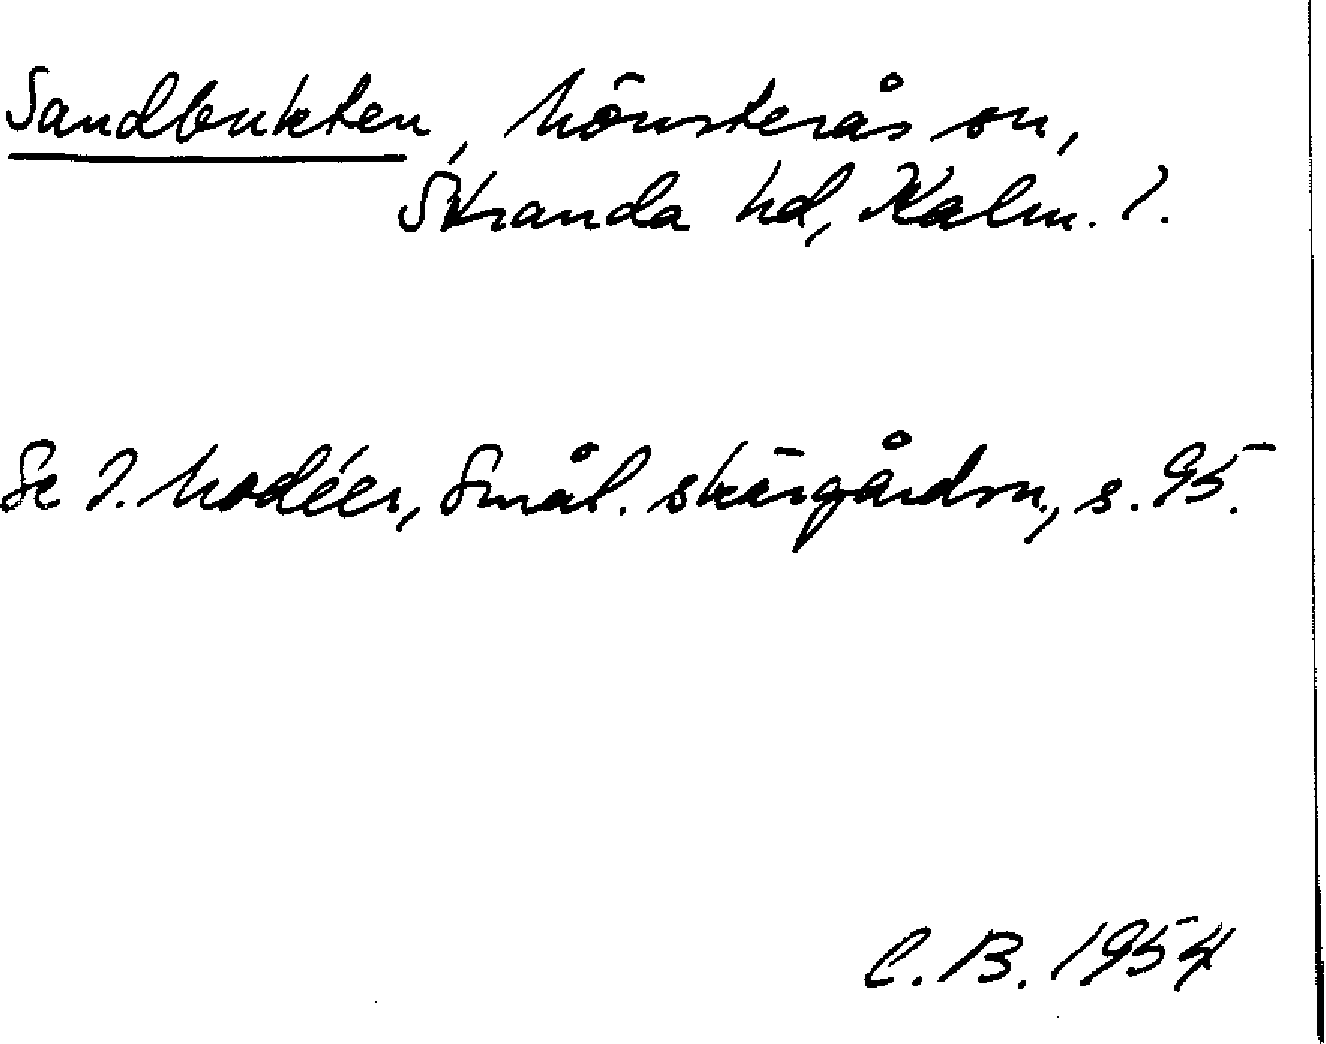 Sandbukten, Mönsterås sn,
Stranda hd, Kalm. l.
Se I. Modéer, Smål. skärgårdsn., s. 95.
C. B. 1954